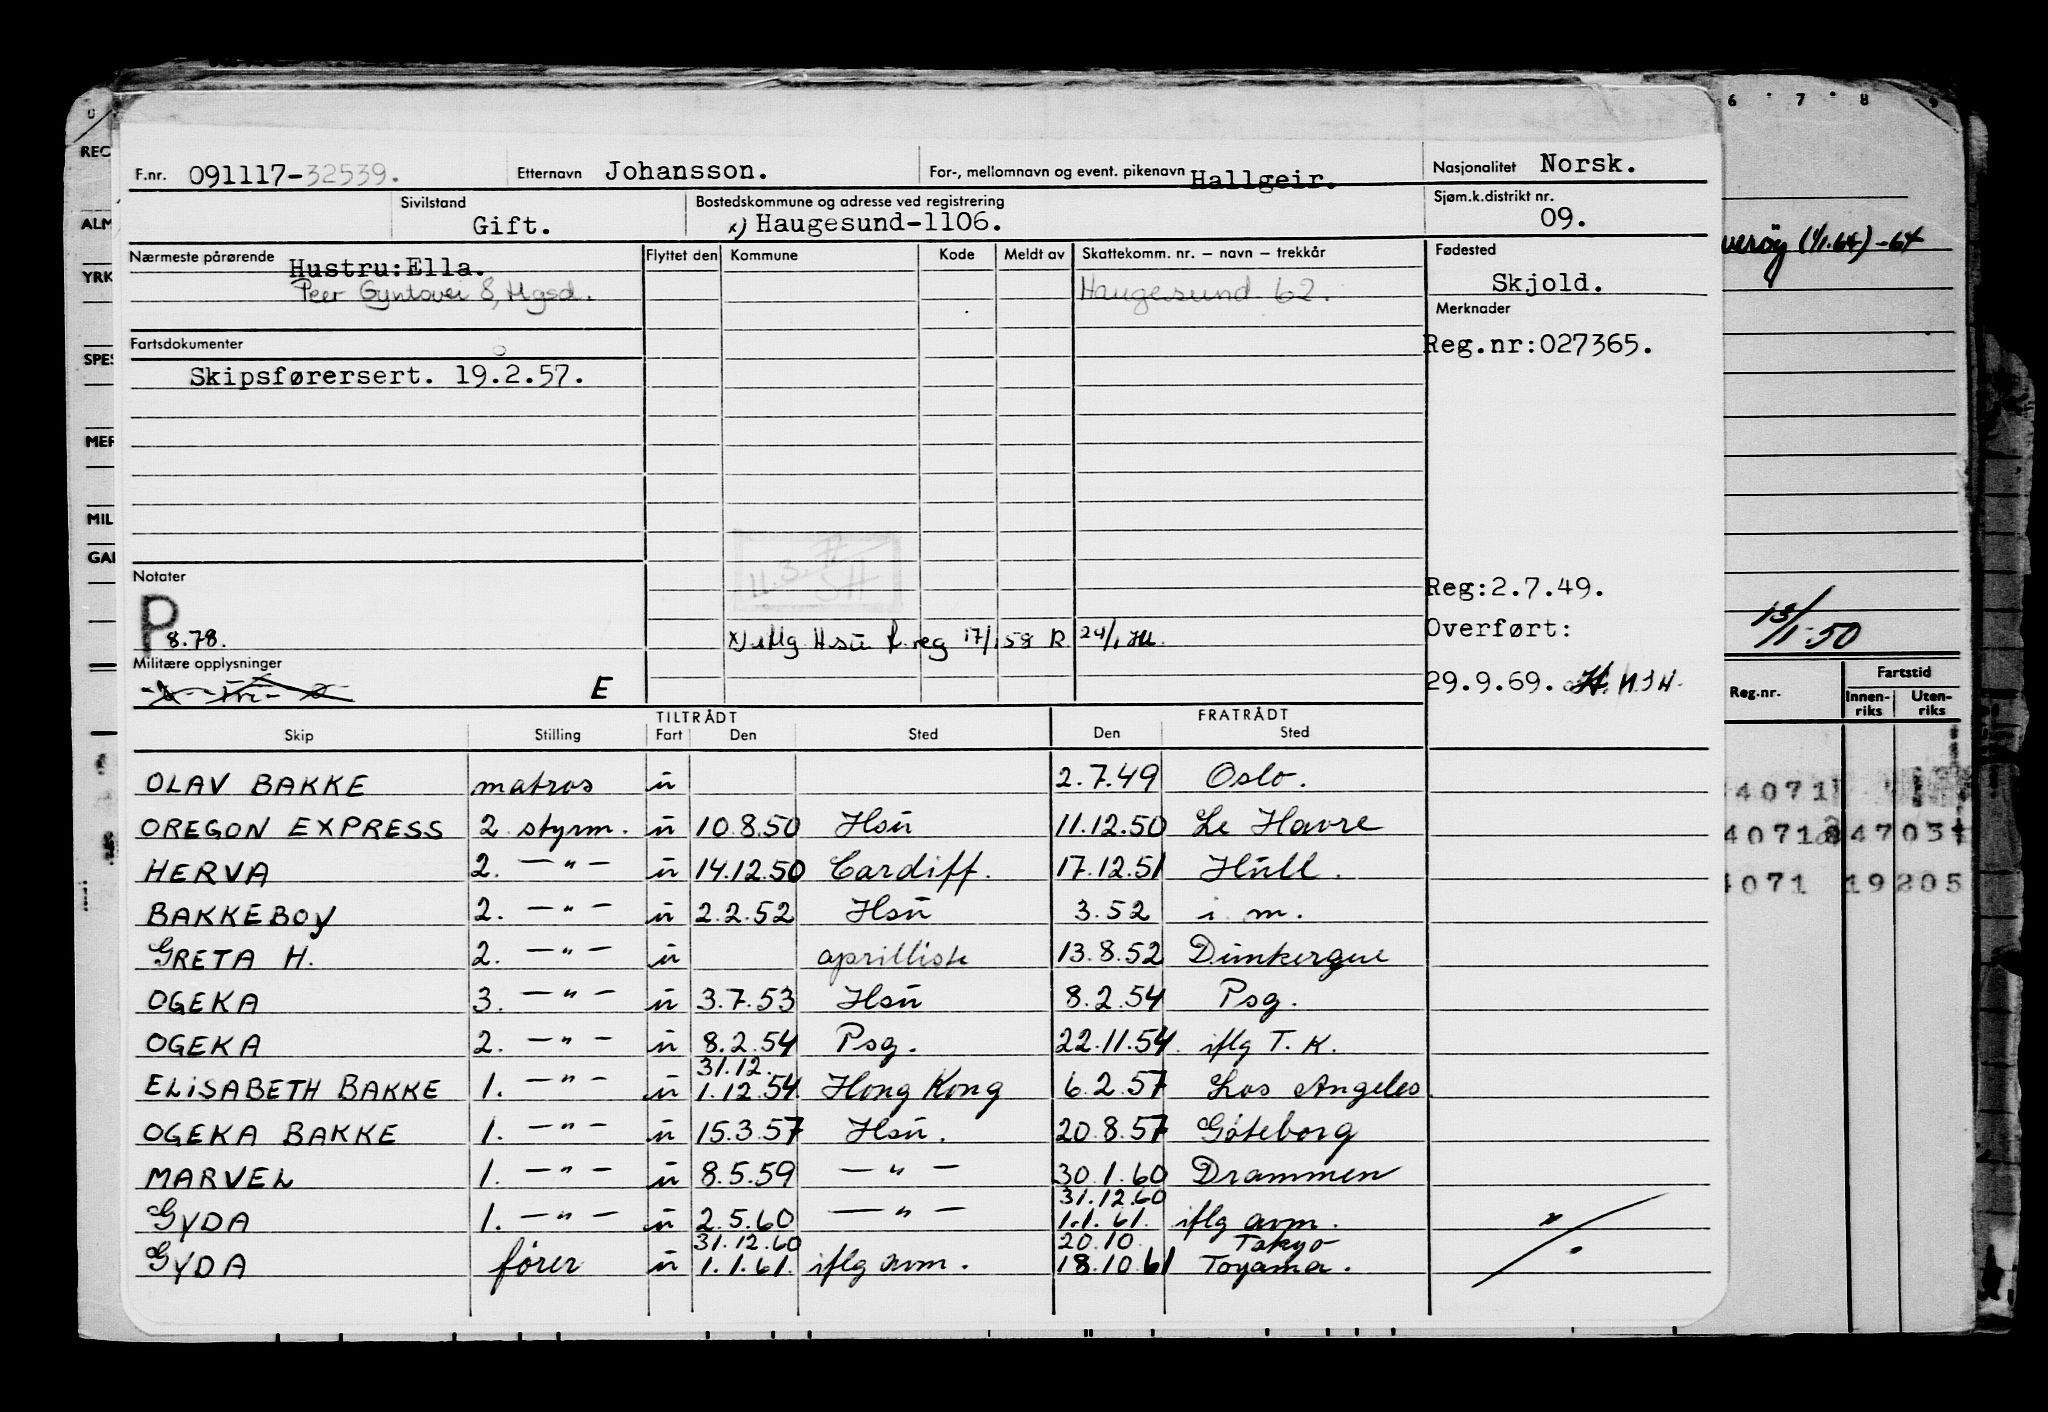 F.nr. 091117-32539. Etternavn Johansson. For-, mellomnavn og event. pikenavn Hallgeir. Nasjonalitet Norsk.
Sivilstand Gift. Bostedskommune og adresse ved registrering x) Haugesund-1106. Sjøm.k.distrikt nr. 09.
Nærmeste pårørende Hustru:Ella. Flyttet den Kommune Kode Meldt av Skattekomm. nr. – navn – trekkår Fødested
Peer Gyntsvei 8, Hgsd. Haugesund 62. Skjold.
Merknader
Fartsdokumenter Reg.nr:027365.
Skipsførersert. 19.2.57.
Notater Reg:2.7.49.
P 8.78. x) iflg Hsū f. reg 17/1 58 R 24/1 Overført:
Militære opplysninger E 29.9.69.
TILTRÅDT FRATRÅDT
Skip Stilling Fart Den Sted Den Sted
OLAV BAKKE matros ū 2.7.49 Oslo.
OREGON EXPRESS 2 styrm. ū 10.8.50 Hsū 11.12.50 Le Havre
HERVA 2. —"— ū 14.12.50 Cardiff. 17.12.51 Hull.
BAKKEBOY 2. —"— ū 2.2.52 Hsū 3.52 i. m.
GRETA H. 2. —"— ū aprilliste 13.8.52 Dunkerque
OGEKA 3. —"— ū 3.7.53 Hsū 8.2.54 Psg.
OGEKA 2. —"— ū 8.2.54 Psg. 22.11.54 iflg T. K.
31.12.
ELISABETH BAKKE 1. —"— ū 1.12.54 Hong Kong 6.2.57 Los Angeles.
OGEKA BAKKE 1. —"— ū 15.3.57 Hsū. 20.8.57 Göteborg
MARVEL 1. —"— ū 8.5.59 —"— 30.1.60 Drammen
31.12.60
GYDA 1. —"— ū 2.5.60 —"— 1.1.61. iflg avm.
31.12.60 20.10. Tokyo
GYDA fører ū 1.1.61. iflg avm. 18.10.61 Toyama.
6 7 8 9
REG
ALM
YRK
SPES
MER
MIL
GAI
verøy (1/1.64)-64
13/1-50
Reg.nr. Fartstid
Innen-riks Uten-riks
4071
4071 47031
4071 19205